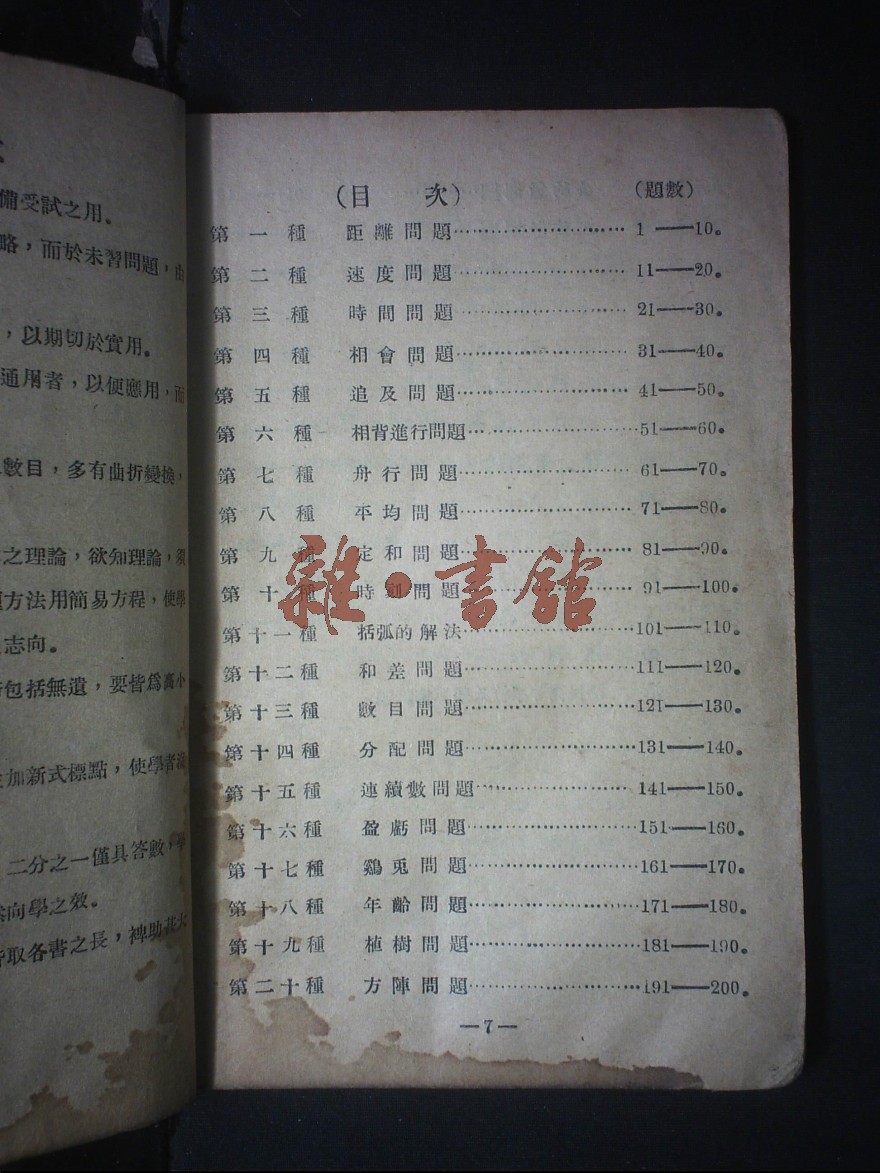 備受試之用。
略，而於未習問題，由
，以期切於實用。
通用者，以便應用，而
數目，多有曲折變換，
之理論，欲知理論，須
方法用簡易方程，使學
志向。
包括無遺，要皆爲高小
加新式標點，使學者
二分之一僅具答數，學
向學之效。
取各書之長，裨助甚大
（目　次）　（題數）
第一種　距離問題……………………… 1 ——10。
第二種　速度問題……………………… 11——20。
第三種　時間問題……………………… 21——30。
第四種　相會問題……………………… 31——40。
第五種　追及問題……………………… 41——50。
第六種　相背進行問題……………………… 51——60。
第七種　舟行問題……………………… 61——70。
第八種　平均問題……………………… 71——80。
第九種　定和問題……………………… 81——90。
第十種　時刻問題……………………… 91——100。
第十一種　括弧的解法……………………… 101——110。
第十二種　和差問題……………………… 111——120。
第十三種　數目問題……………………… 121——130。
第十四種　分配問題……………………… 131——140。
第十五種　連續數問題……………………… 141——150。
第十六種　盈虧問題……………………… 151——160。
第十七種　鷄兎問題……………………… 161——170。
第十八種　年齡問題……………………… 171——180。
第十九種　植樹問題……………………… 181——190。
第二十種　方陣問題……………………… 191——200。
—7—
雜·書館